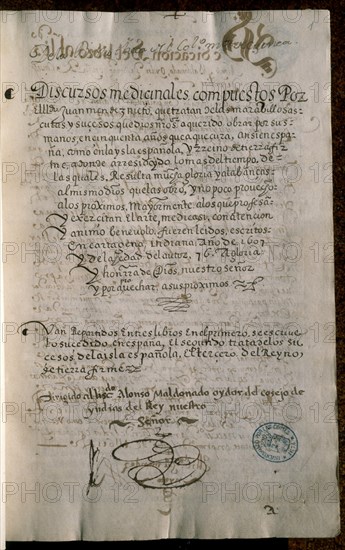 Discursos medicinales compuestos Por
Juan mendez nieto, que tratan delas marabillosas
curas y sucesos que dios nro señor a querido obrar por sus
manos, en cinquenta años que a que cura, ansi en espa
ña, como en la ysla española, y rreino de tierra fir
me, adonde a rresidido, lo mas del tiempo, de
las quales, Resulta mucha gloria y alabança s
al mismo dios que las obro, y no poco provecho
a los proximos, Mayormente a los que profesan
y exercitan El arte, medica, si con atencion
y animo benevolo, fueren leidos, escritos
En cartagena, indiana, Año de 1607
y de la edad del autor, 76. A gloria
y honrra de Dios, nuestro señor
y por aprovechar, a sus proximos.
Van Repartidos En tres libros En el primero, se escrive
lo sucedido, en españa, el segundo trata de los su
cesos de la isla española, El tercero, del Reyno,
de tierra firme
Dirigido al licdo Alonso Maldonado oydor del cosejo de
yndias del Rey nuestro
Señor
A
PHOTO 12